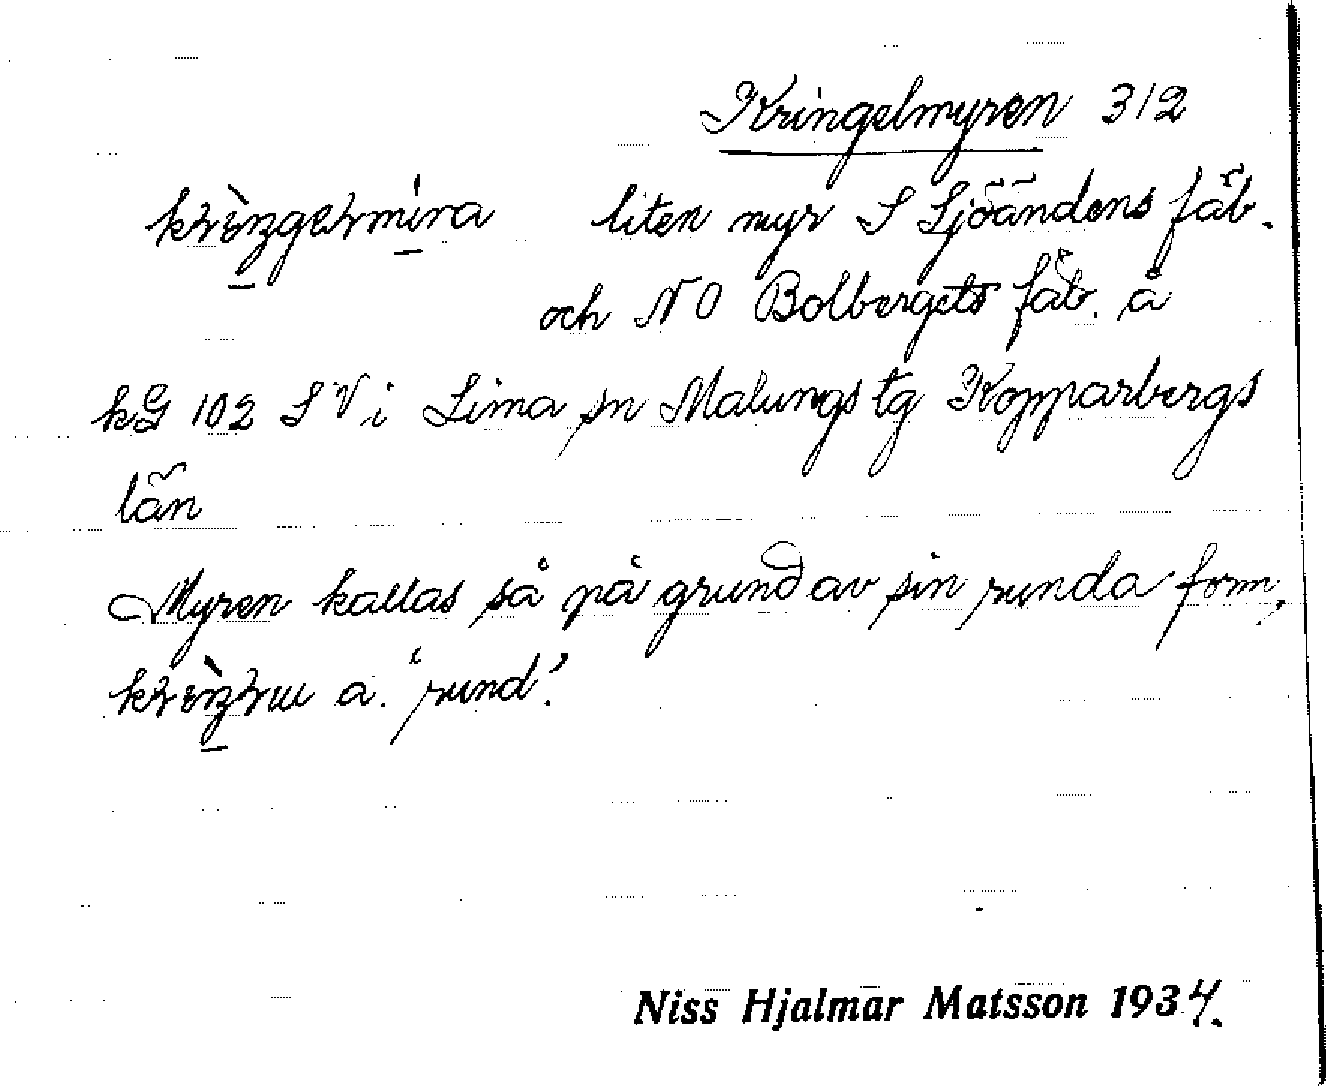 Kringelmyren 312
liten myr S Sjöändens fäb.
och NO Bolbergets fäb. å
kG 102 SV i Lima sn Malungs tg Kopparbergs
län
Myren kallas så på grund av sin runda form,
a. 'rund'.
Niss Hjalmar Matsson 1934.